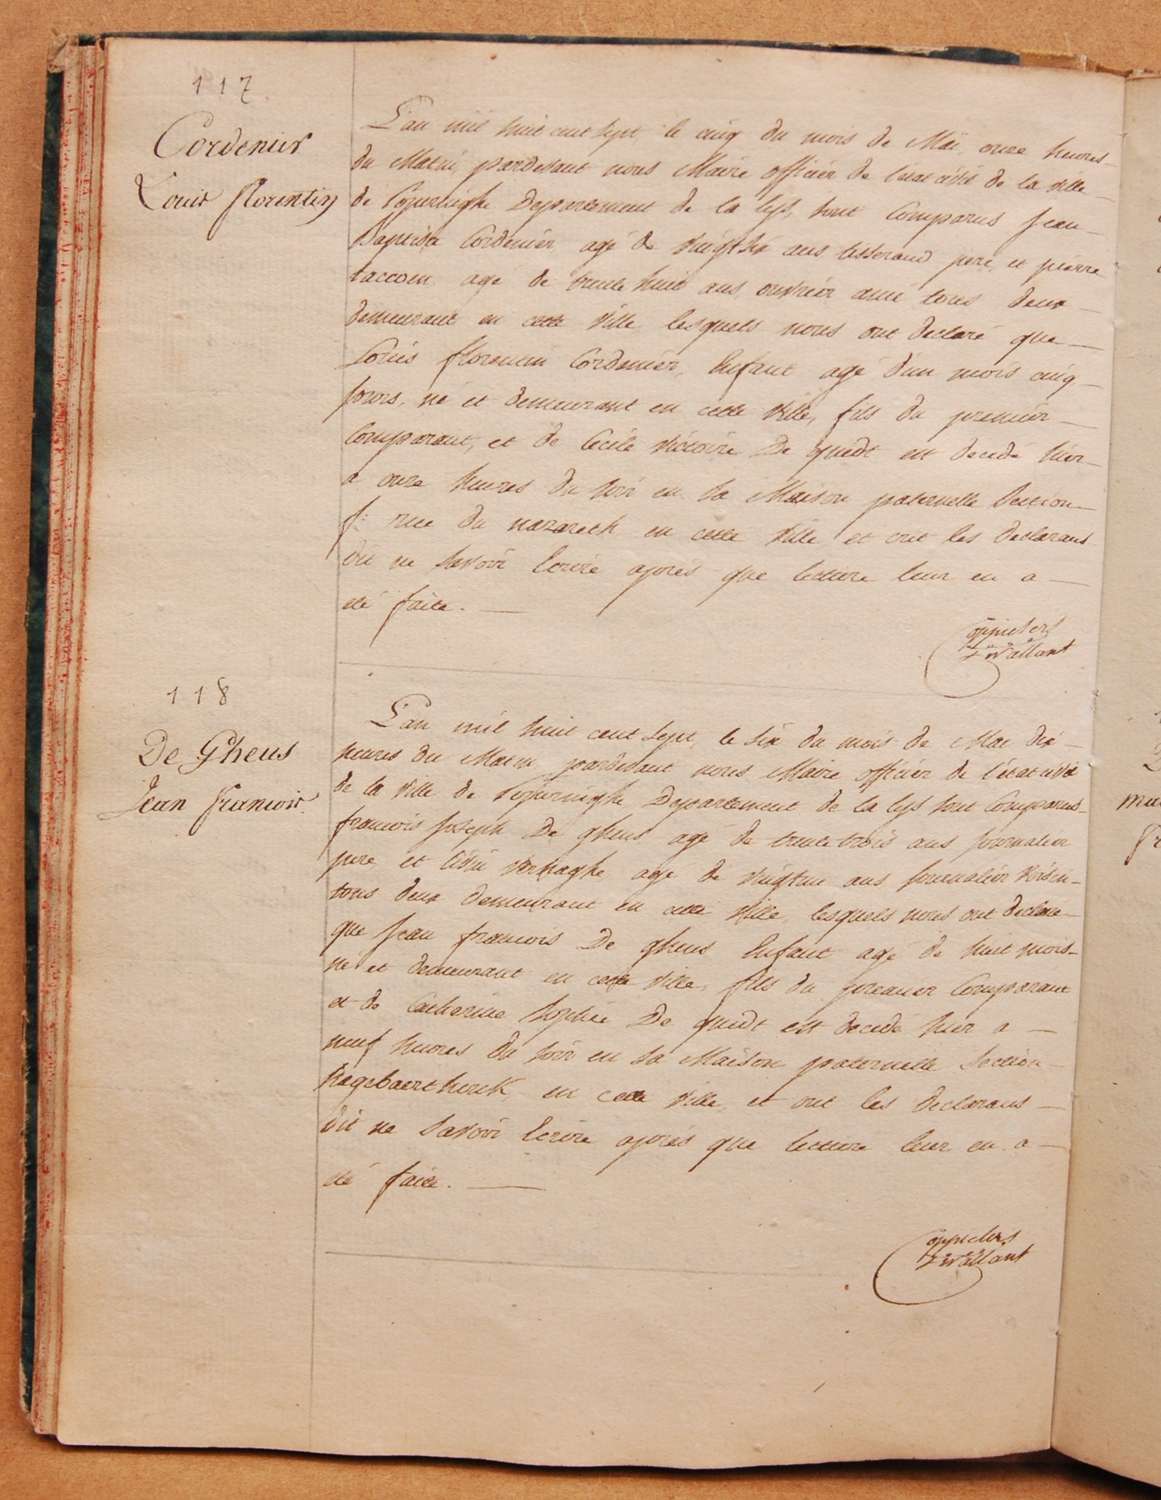 117
Cordenier
Louis florentin
L'an mil huit cent sept le cinq du mois de Mai, onze heures
du Matin, pardevant nous Maire officier de l'etat civil de la ville
de Poperinghe Departement de la lys, sont Comparus Jean
Baptiste Cordenier agé de vingt six ans tisserand pere, et pierre
age de trente huit ans, ouvrier ami tous deux
demeurant en cette ville lesquels nous ont declaré que
Louis florentin Cordenier, Enfant agé d'un mois cinq
jours, né et demeurant en cette ville, fils du premier
Comparant, et de Cecile victoire De quidt est decede hier
a onze heures du soir en sa Maison paternelle Section
f: rue du nazareth en cette ville et ont les declarans
dit ne savoir Ecrire aprés que lecture leur en a
été faite.
118
De Gheus
Jean Francois
L'an mil huit cent sept, le six du mois de Mai dix
heures du Matin pardevant nous Maire officier de l'état civil
de la ville de Poperinghe Departement de la lys sont Comparus
francois Joseph De gheus agé de trente trois ans journalier
pere et verhaghe age de vingt un ans journalier voisin
tous deux demeurant en cette ville, lesquels nous ont declaré
que Jean francois De gheus Enfant agé de huit mois
né et demeurant en cette ville, fils du premier Comparant
et de Catherine Sophie De quidt est decedé hier a
neuf heures du soir en sa Maison paternelle Section
en cette ville, et ont les declarans
dit ne savoir Ecrire aprés que lecture leur en a
été faite.